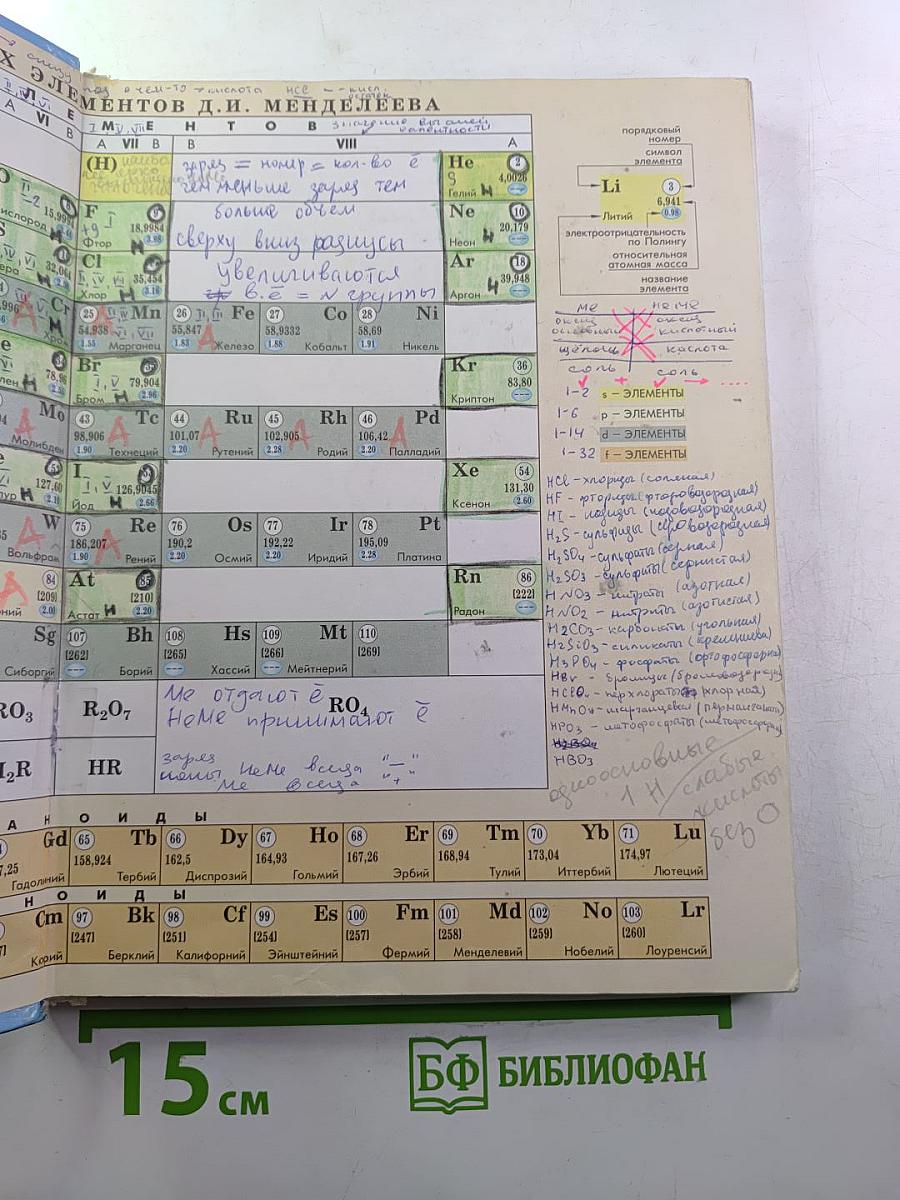 Х ЭЛЕМЕНТОВ Д.И. МЕНДЕЛЕЕВА
М Е Н Т О В значение высшей валентности
VI В А VII В В VIII А
(H) заряд = номер = кол-во ē He 2
4,0026
Гелий Н
чем меньше заряд тем
F I 9 больше объём Ne 10
18,9984 20,179
Фтор Н 3.98 сверху вниз радиусы Неон Н
Cl увеличиваются Ar 18
35,454 39,948
Хлор Н 3.16 в.ē = N группы Аргон Н
Cr 25 Mn 26 Fe 27 Co 28 Ni
54,938 55,847 58,9332 58,69
1.55 Марганец 1.83 Железо 1.88 Кобальт 1.91 Никель
Br I, V Kr 36
79,904 83,80
Бром Н 2.96 Криптон
Mo 43 Tc 44 Ru 45 Rh 46 Pd
98,906 101,07 102,905 106,42
Молибден 1.90 Технеций 2.20 Рутений 2.28 Родий 2.20 Палладий
I I, V Xe 54
127,60 126,9045 131,30
Йод Н 2.66 Ксенон 2.60
W 75 Re 76 Os 77 Ir 78 Pt
186,207 190,2 192,22 195,09
Вольфрам 1.90 Рений 2.20 Осмий 2.20 Иридий 2.28 Платина
84 At 85 Rn 86
[209] [210] [222]
2.00 Астат Н 2.20 Радон
Sg 107 Bh 108 Hs 109 Mt 110
[262] [265] [266] [269]
Сиборгий Борий Хассий Мейтнерий
RO₃ R₂O₇ RO₄
Ме отдают ē
НеМе принимают ē
H₂R HR
заряд
ионы НеМе всегда "–"
Ме всегда "+"
А Н О И Д Ы
Gd 65 Tb 66 Dy 67 Ho 68 Er 69 Tm 70 Yb 71 Lu
7,25 158,924 162,5 164,93 167,26 168,94 173,04 174,97
Гадолиний Тербий Диспрозий Гольмий Эрбий Тулий Иттербий Лютеций
Н О И Д Ы
Cm 97 Bk 98 Cf 99 Es 100 Fm 101 Md 102 No 103 Lr
[247] [251] [254] [257] [258] [259] [260]
Кюрий Берклий Калифорний Эйнштейний Фермий Менделевий Нобелий Лоуренсий
порядковый номер
символ элемента
Li 3
6,941
Литий 0.98
электроотрицательность
по Полингу
относительная
атомная масса
название
элемента
Ме НеМе
оксид оксид
основный кислотный
щёлочь кислота
соль соль
1-2 s – ЭЛЕМЕНТЫ
1-6 p – ЭЛЕМЕНТЫ
1-14 d – ЭЛЕМЕНТЫ
1-32 f – ЭЛЕМЕНТЫ
HCl - хлориды (соляная)
HF - фториды (фтороводородная)
HI - иодиды (иодоводородная)
H₂S - сульфиды (сероводородная)
H₂SO₄ - сульфаты (серная)
H₂SO₃ - сульфиты (сернистая)
HNO₃ - нитраты (азотная)
HNO₂ - нитриты (азотистая)
H₂CO₃ - карбонаты (угольная)
H₂SiO₃ - силикаты (кремниева)
H₃PO₄ - фосфаты (ортофосфорна)
HBr - бромиды (бромоводородн)
HClO₄ - перхлораты (хлорная)
HMnO₄ - марганцевая (перманганаты)
HPO₃ - метафосфаты (метафосфорн)
HBO₃
одноосновные
1 H
слабые
кислоты
без O
15 см
БФ БИБЛИОФАН